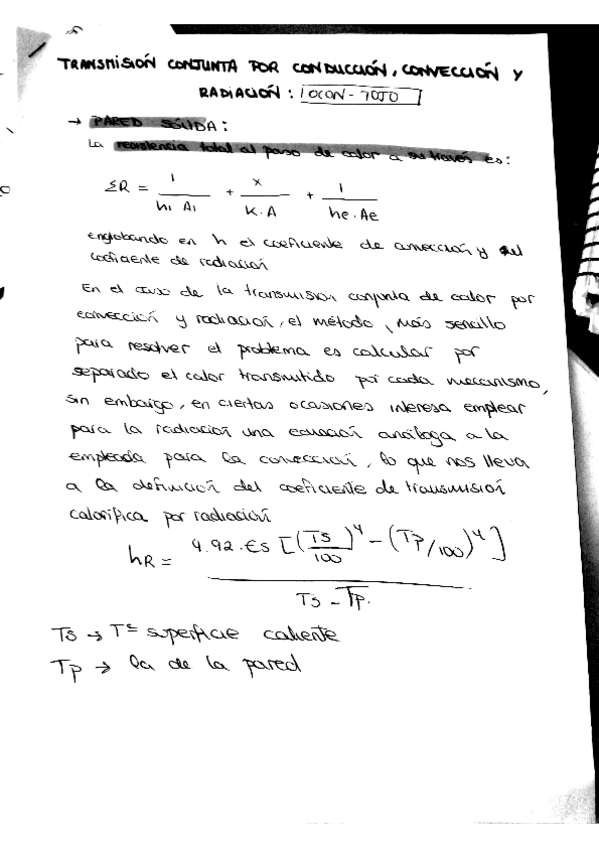 TRANSMISIÓN CONJUNTA POR CONDUCCIÓN, CONVECCIÓN Y
RADIACIÓN: OCON-TOJO
→ PARED SÓLIDA:
La resistencia total al paso de calor a su través es:
ΣR = 1 / (hi Ai) + x / (K.A) + 1 / (he.Ae)
englobando en h el coeficiente de convección y del
coeficiente de radiación
En el caso de la transmisión conjunta de calor por
convección y radiación, el método más sencillo
para resolver el problema es calcular por
separado el calor transmitido por cada mecanismo,
sin embargo, en ciertas ocasiones interesa emplear
para la radiación una ecuación análoga a la
empleada para la convección, lo que nos lleva
a la definición del coeficiente de transmisión
calorífica por radiación
hR = 4.92.Es [(Ts/100)^4 - (Tp/100)^4] / (Ts - Tp.)
Ts → Tª superficie caliente
Tp → la de la pared